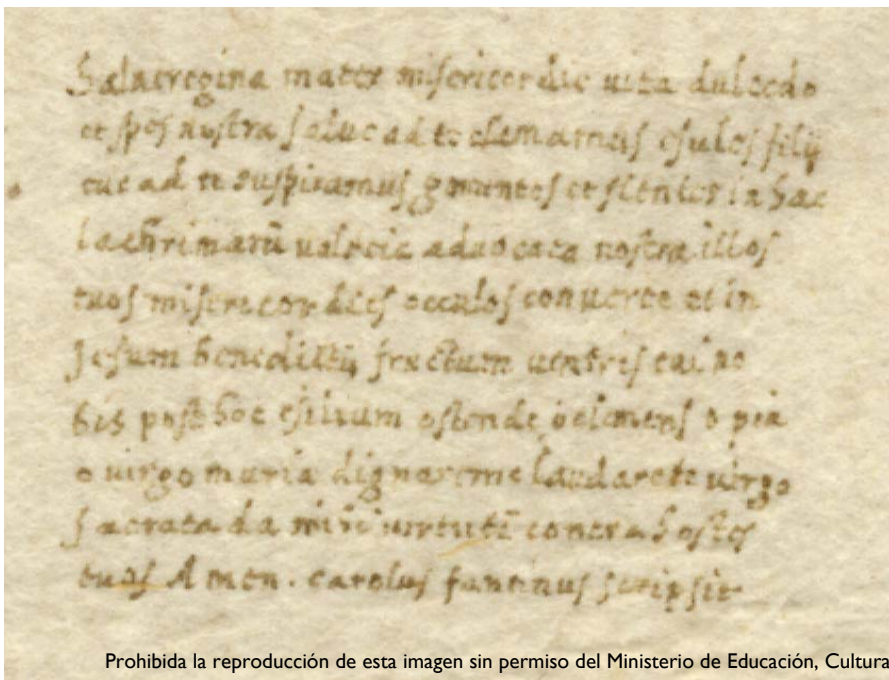 Saluereginа mater misericordie uita dulcedo
et spes nostra salue ad te clamamus esules filij
eue ad te suspiramus gementes et flentes in hac
lachrimarū ualecie aduocata nostra illos
tuos misericordies occulos conuerte et in
Jesum benedittū fructum uentres tui no
bis post hoc esilium ostende o clemens o pia
o uirgo maria dignareme laudarete uirgo
sacrata da mihi uirtutē contra hostes
tuos Amen. carolus fantinus scripsit
Prohibida la reproducción de esta imagen sin permiso del Ministerio de Educación, Cultura